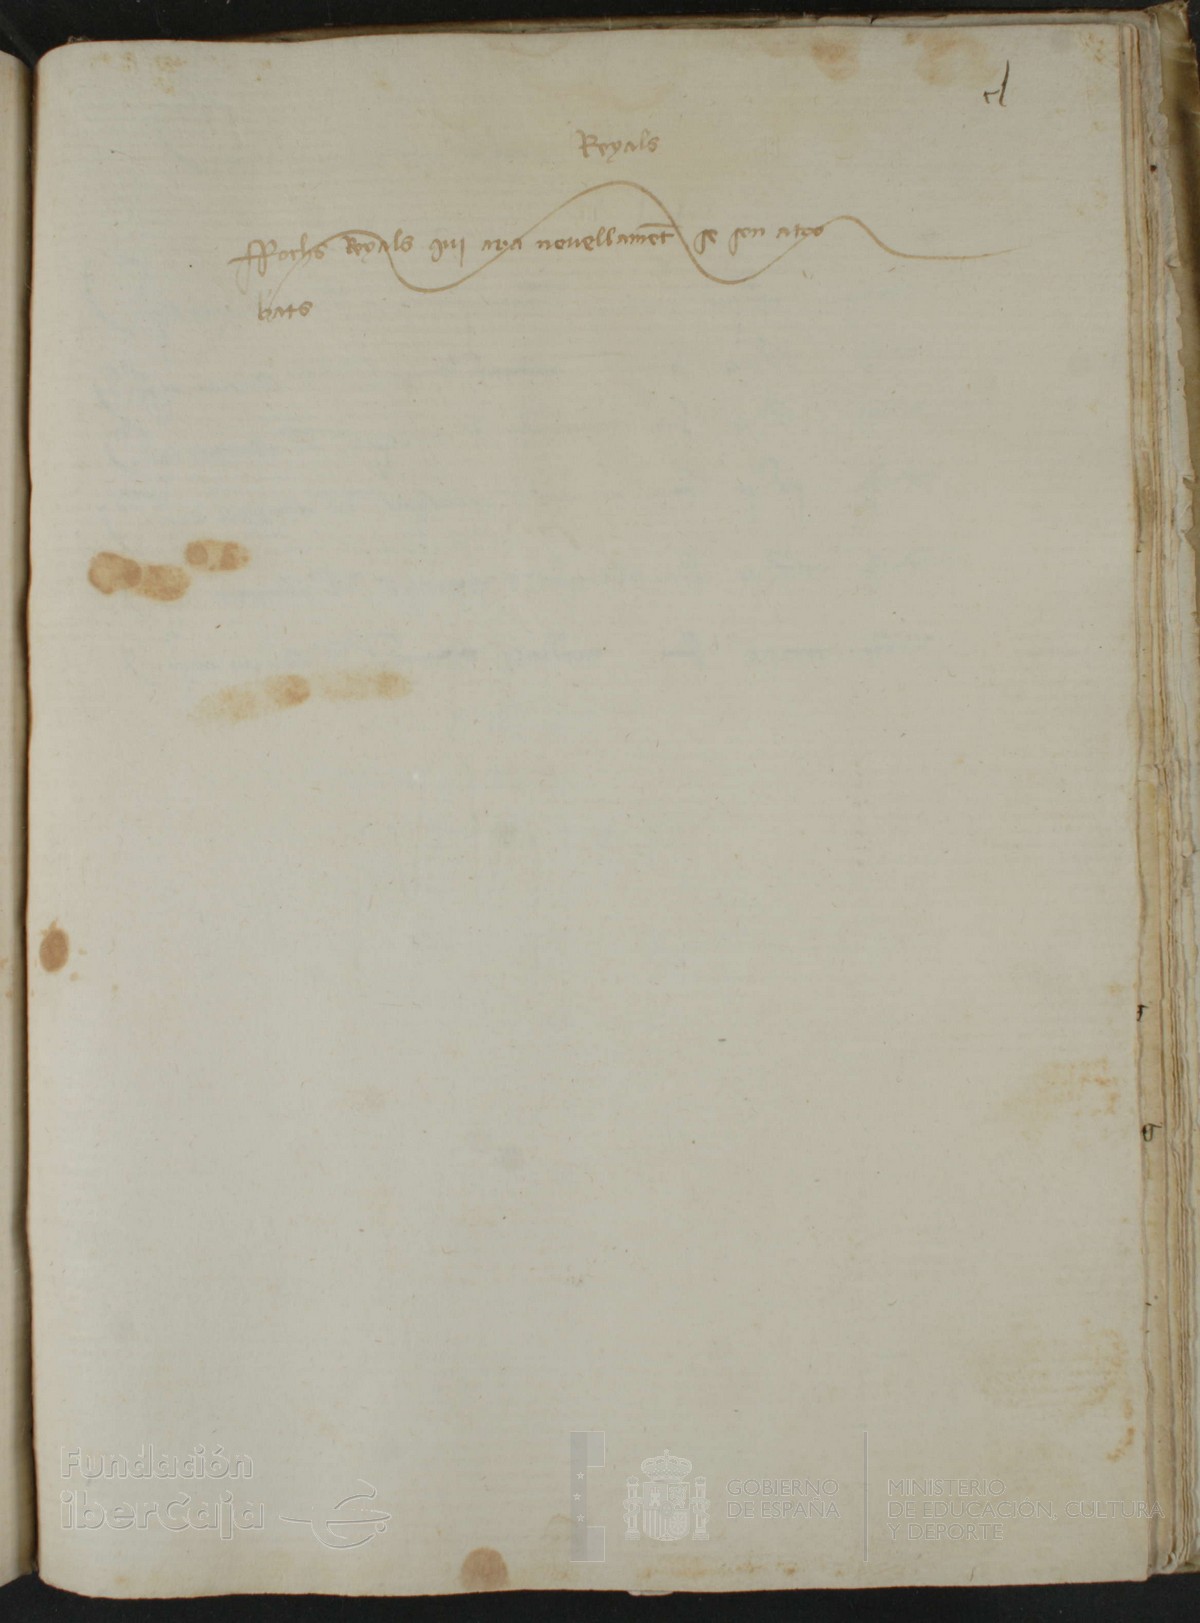 Reyals
Ffochs Reyals qui ara novellament se son atro
bats
Fundación
iberCaja
GOBIERNO
DE ESPAÑA
MINISTERIO
DE EDUCACIÓN, CULTURA
Y DEPORTE